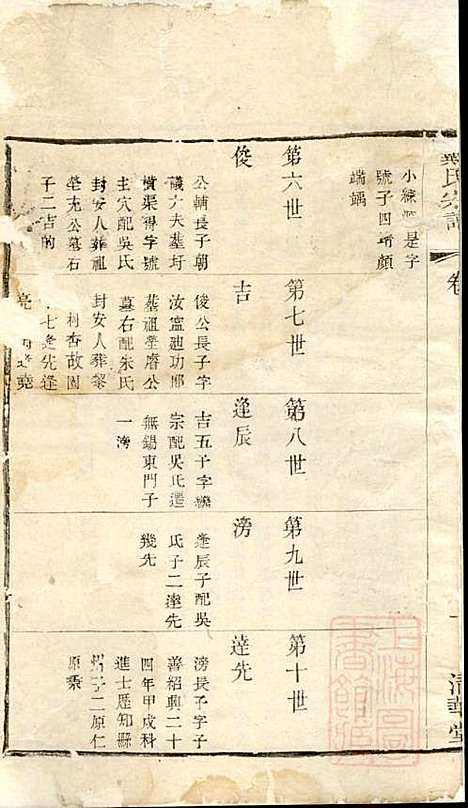 氏宗譜
卷
一
清華堂
小練源是字
號子四靖顏
端鍝
第六世
俊
公輔長子朝
議六夫墓圩
橫渠得字號
主穴配吳氏
封安人葬祖
塋充公墓石
子二吉的
第七世
吉
俊公長子字
汝富廸功郎
墓祖塋膺公
墓右配朱氏
封安人葬黎
村香故園
七逢先逢
逢堯
第八世
逢辰
吉五子字
宗配吳氏遷
無錫東門子
一滂
第九世
滂
逢辰子配吳
氏子二達先
幾先
第十世
達先
滂長子字子
善紹興二十
四年甲戌科
進士歷知縣
子二原仁
原秉
上海圖
書館藏